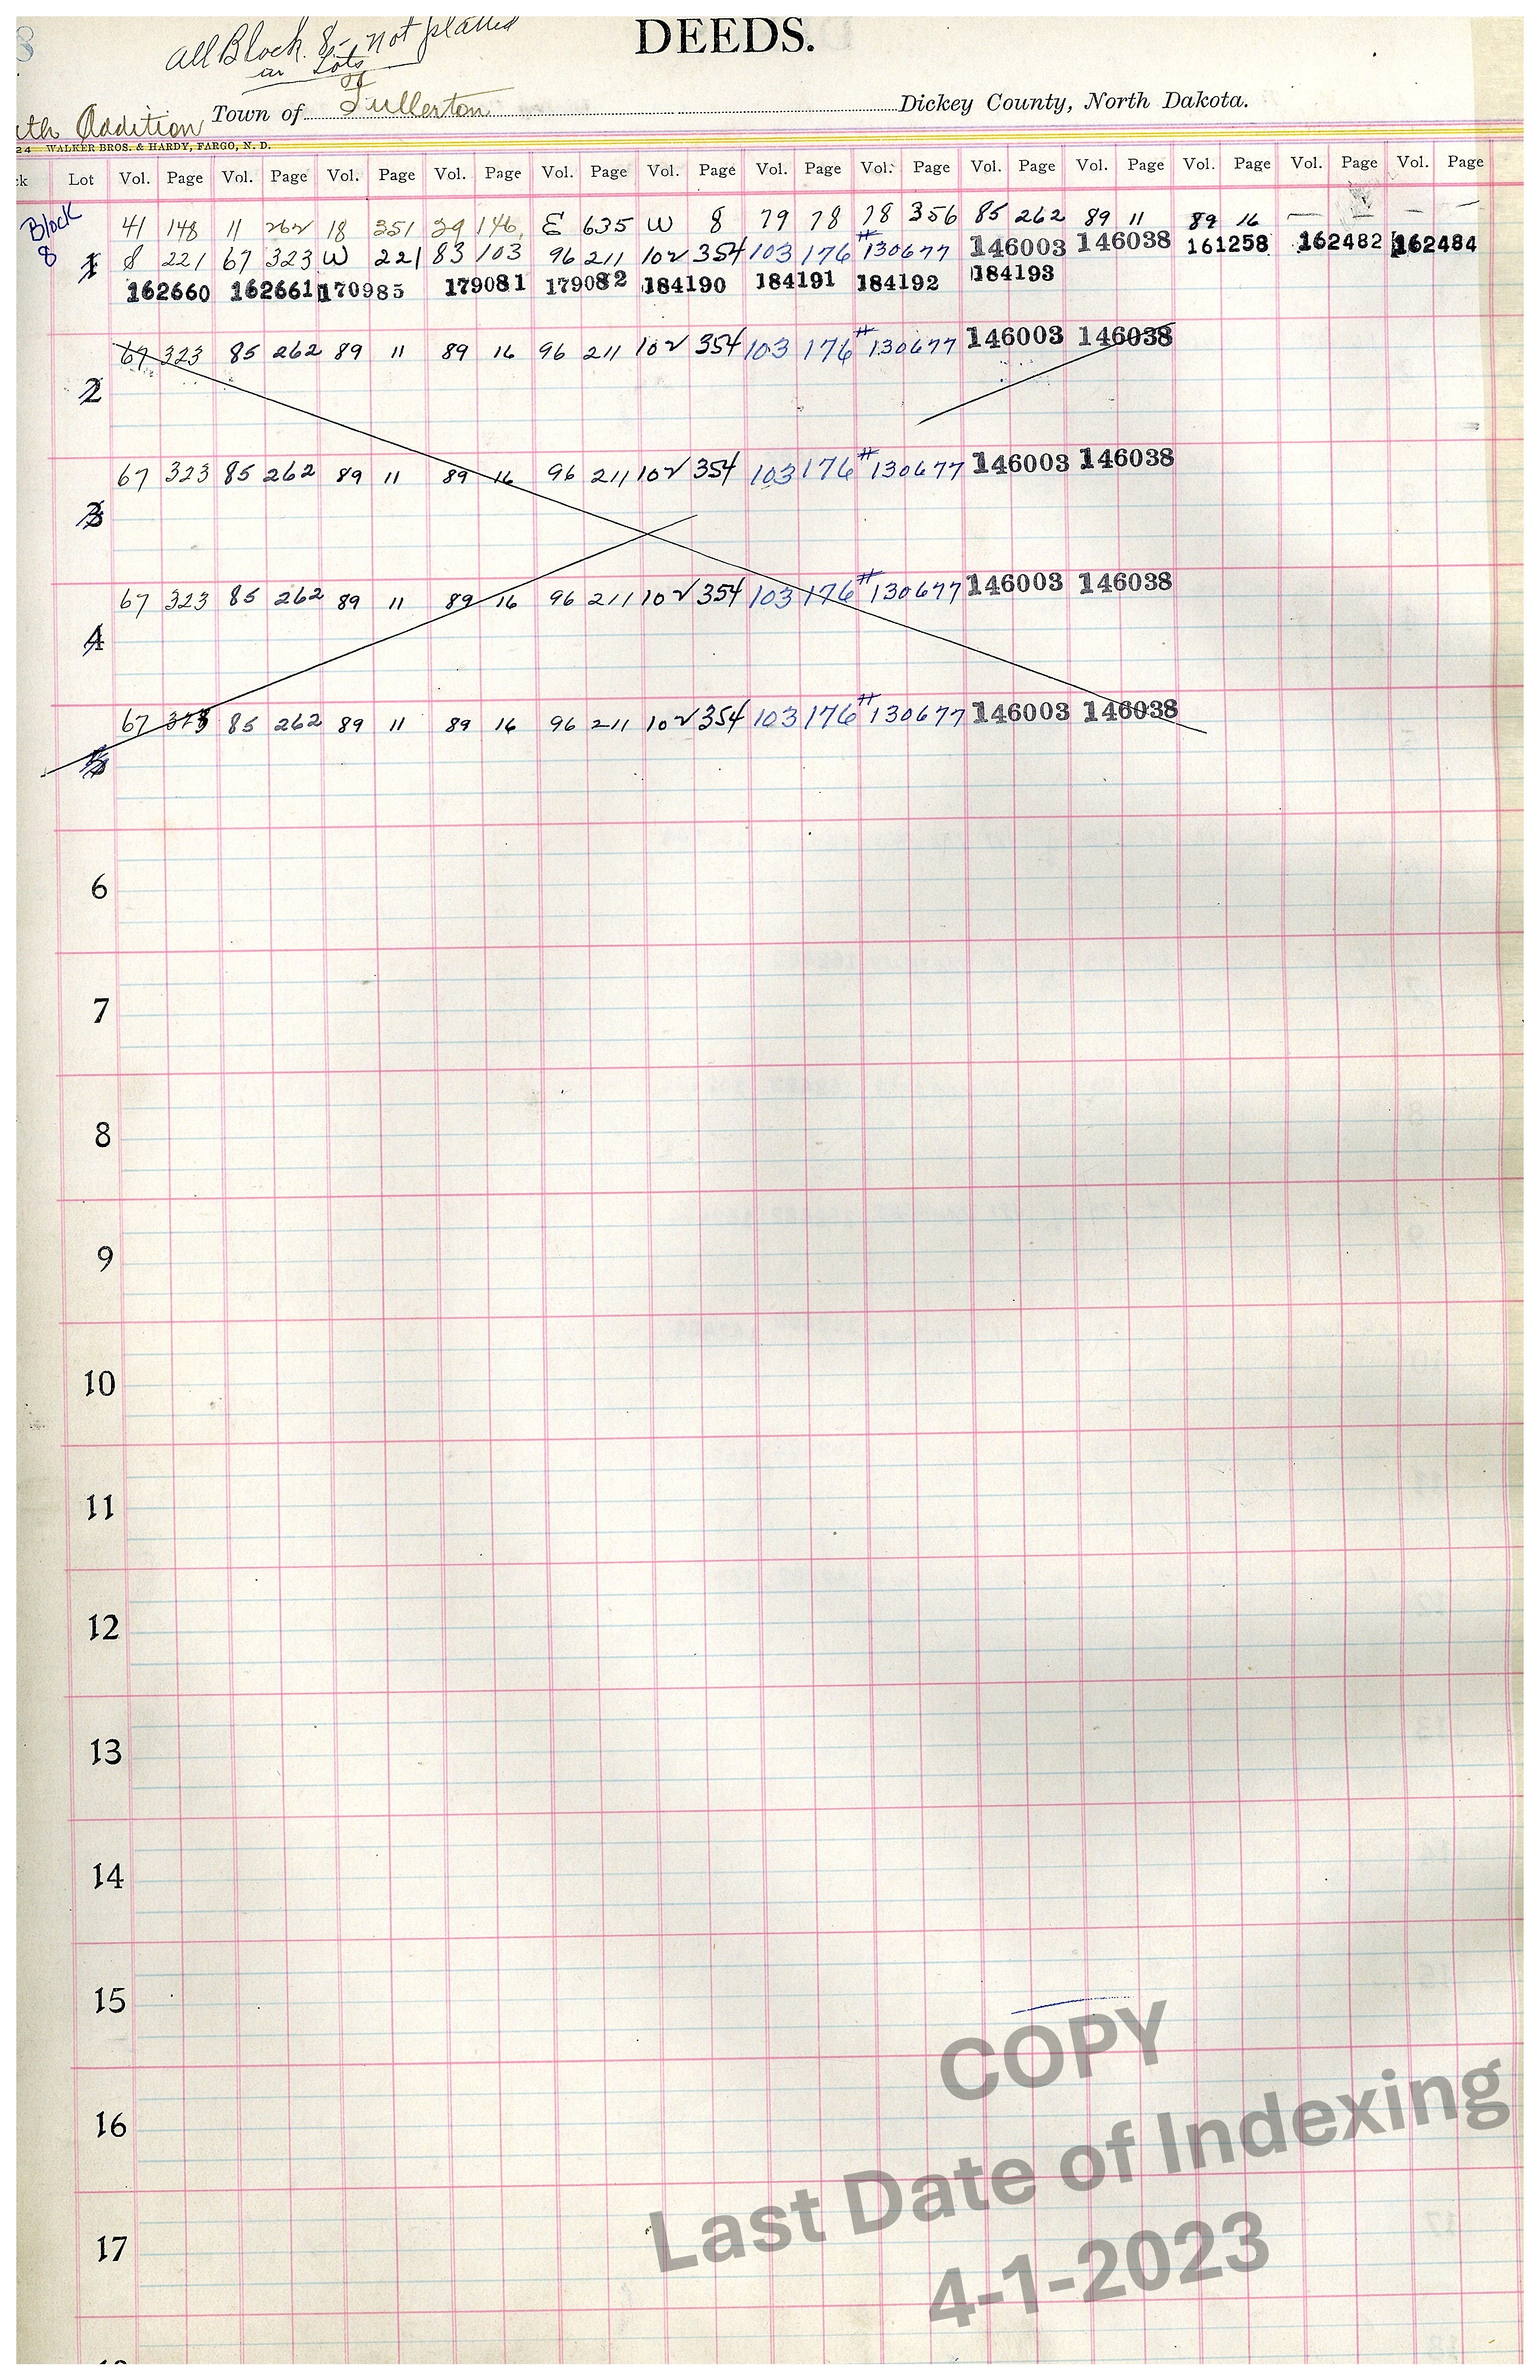 8
DEEDS.
All Block 8 - not platted
in Lots
of
uth Addition Town of Fullerton Dickey County, North Dakota.
24 WALKER BROS. & HARDY, FARGO, N. D.
ck Lot Vol. Page Vol. Page Vol. Page Vol. Page Vol. Page Vol. Page Vol. Page Vol. Page Vol. Page Vol. Page Vol. Page Vol. Page Vol. Page
Block 41 148 11 262 18 351 29 146 E 635 W 8 79 78 78 356 85 262 89 11 89 16 — — — —
8 1 8 221 67 323 W 221 83 103 96 211 102 354 103 176 #130677 146003 146038 161258 162482 162484
162660 162661 170985 179081 179082 184190 184191 184192 184193
67 323 85 262 89 11 89 16 96 211 102 354 103 176 #130677 146003 146038
2
67 323 85 262 89 11 89 16 96 211 102 354 103 176 #130677 146003 146038
3
67 323 85 262 89 11 89 16 96 211 102 354 103 176 #130677 146003 146038
4
67 323 85 262 89 11 89 16 96 211 102 354 103 176 #130677 146003 146038
5
6
7
8
9
10
11
12
13
14
15
16
17
COPY
Last Date of Indexing
4-1-2023